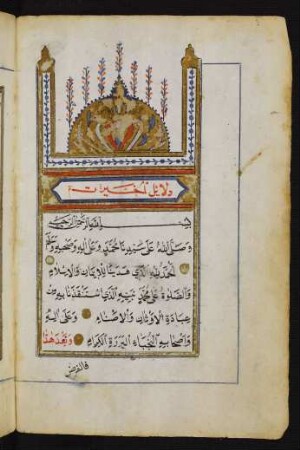 دلائل الخيرات
بسم الله الرحمن الرحيم
وصلى الله على سيدنا محمد وعلى اله وصحبه وسلم
الحمد لله الذي هدينا للايمان والاسلام
والصلوة على محمد نبيه الذي استنقذنا به من
عبادة الاوثان والاصنام وعلى اله
واصحابه النجباء البررة الكرام وبعد هذا
فالغرض